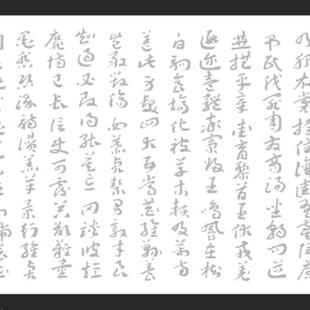 乃服衣裳推位讓國有虞陶唐
弔民伐罪周發商湯坐朝問道
垂拱平章愛育黎首臣伏戎羌
遐邇壹體率賓歸王鳴鳳在樹
白駒食場化被草木賴及萬方
蓋此身髮四大五常恭惟鞠養
豈敢毀傷女慕貞絜男效才良
知過必改得能莫忘罔談彼短
靡恃己長信使可覆器欲難量
墨悲絲染詩讚羔羊景行維賢